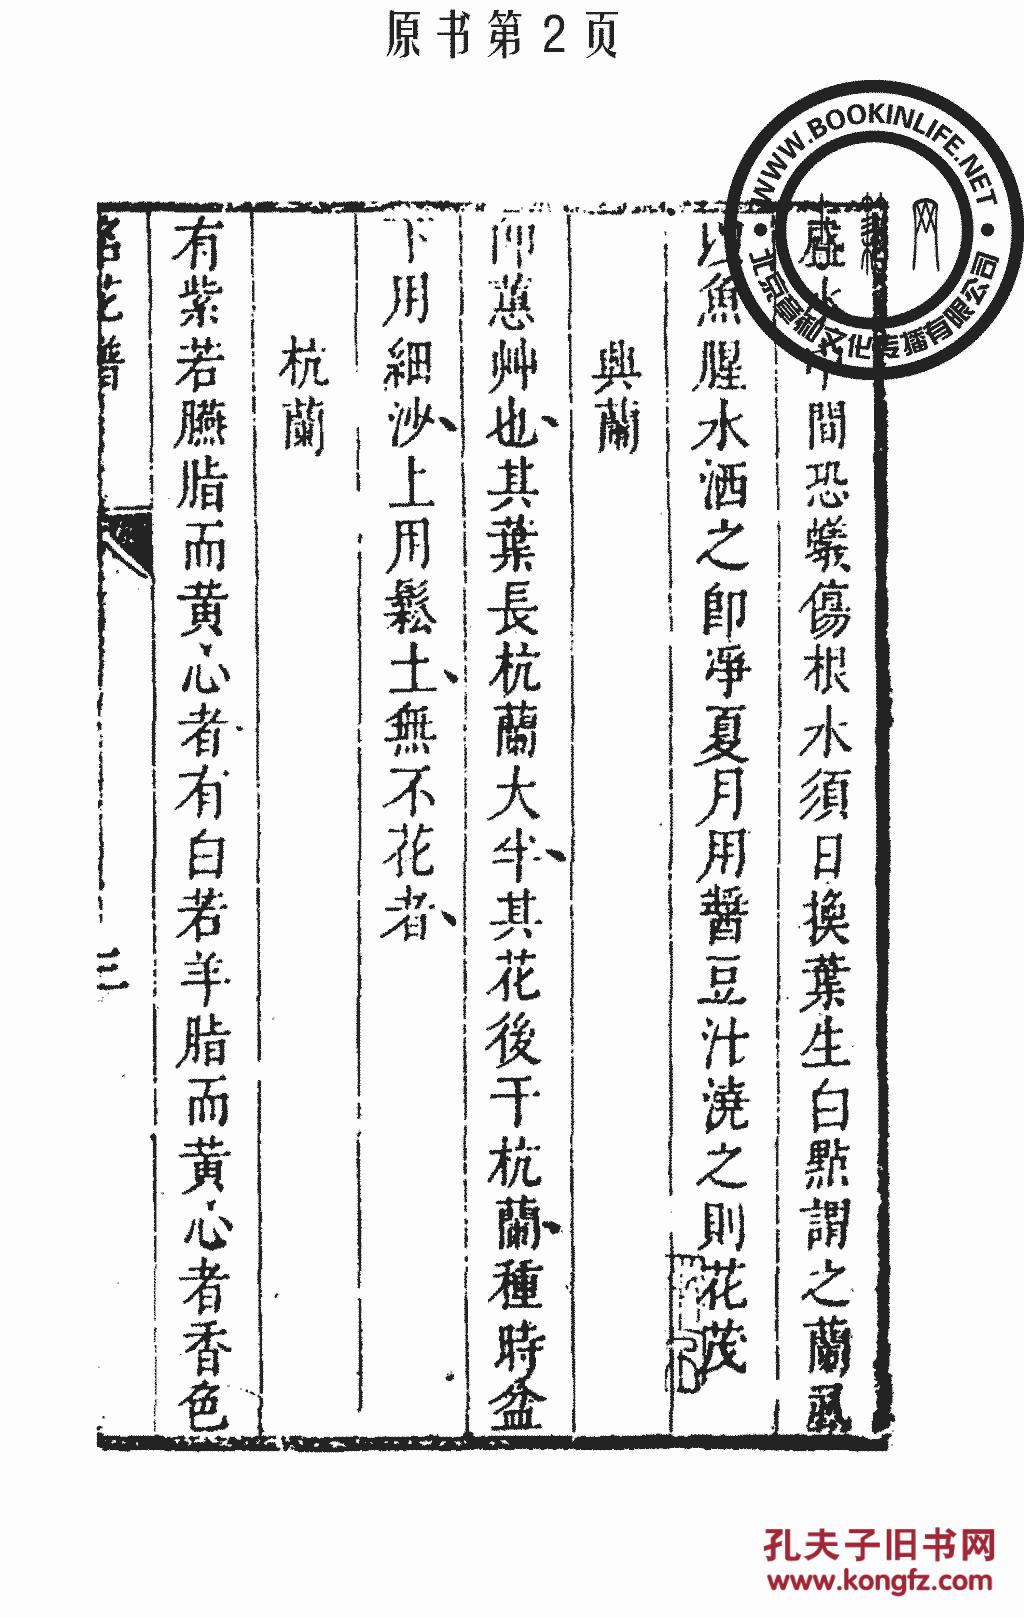 原书第2页
WWW.BOOKINLIFE.NET
北京真知文化传播有限公司
盛水中間恐蟻傷根水須日換葉生白點謂之蘭虱
以魚腥水洒之即凈夏月用醬豆汁澆之則花茂
興蘭
即蕙艸也其葉長杭蘭大半其花後于杭蘭種時盆
下用細沙上用鬆土無不花者
杭蘭
有紫若臙脂而黄心者有白若羊脂而黄心者香色
名花譜
三
孔夫子旧书网
www.kongfz.com